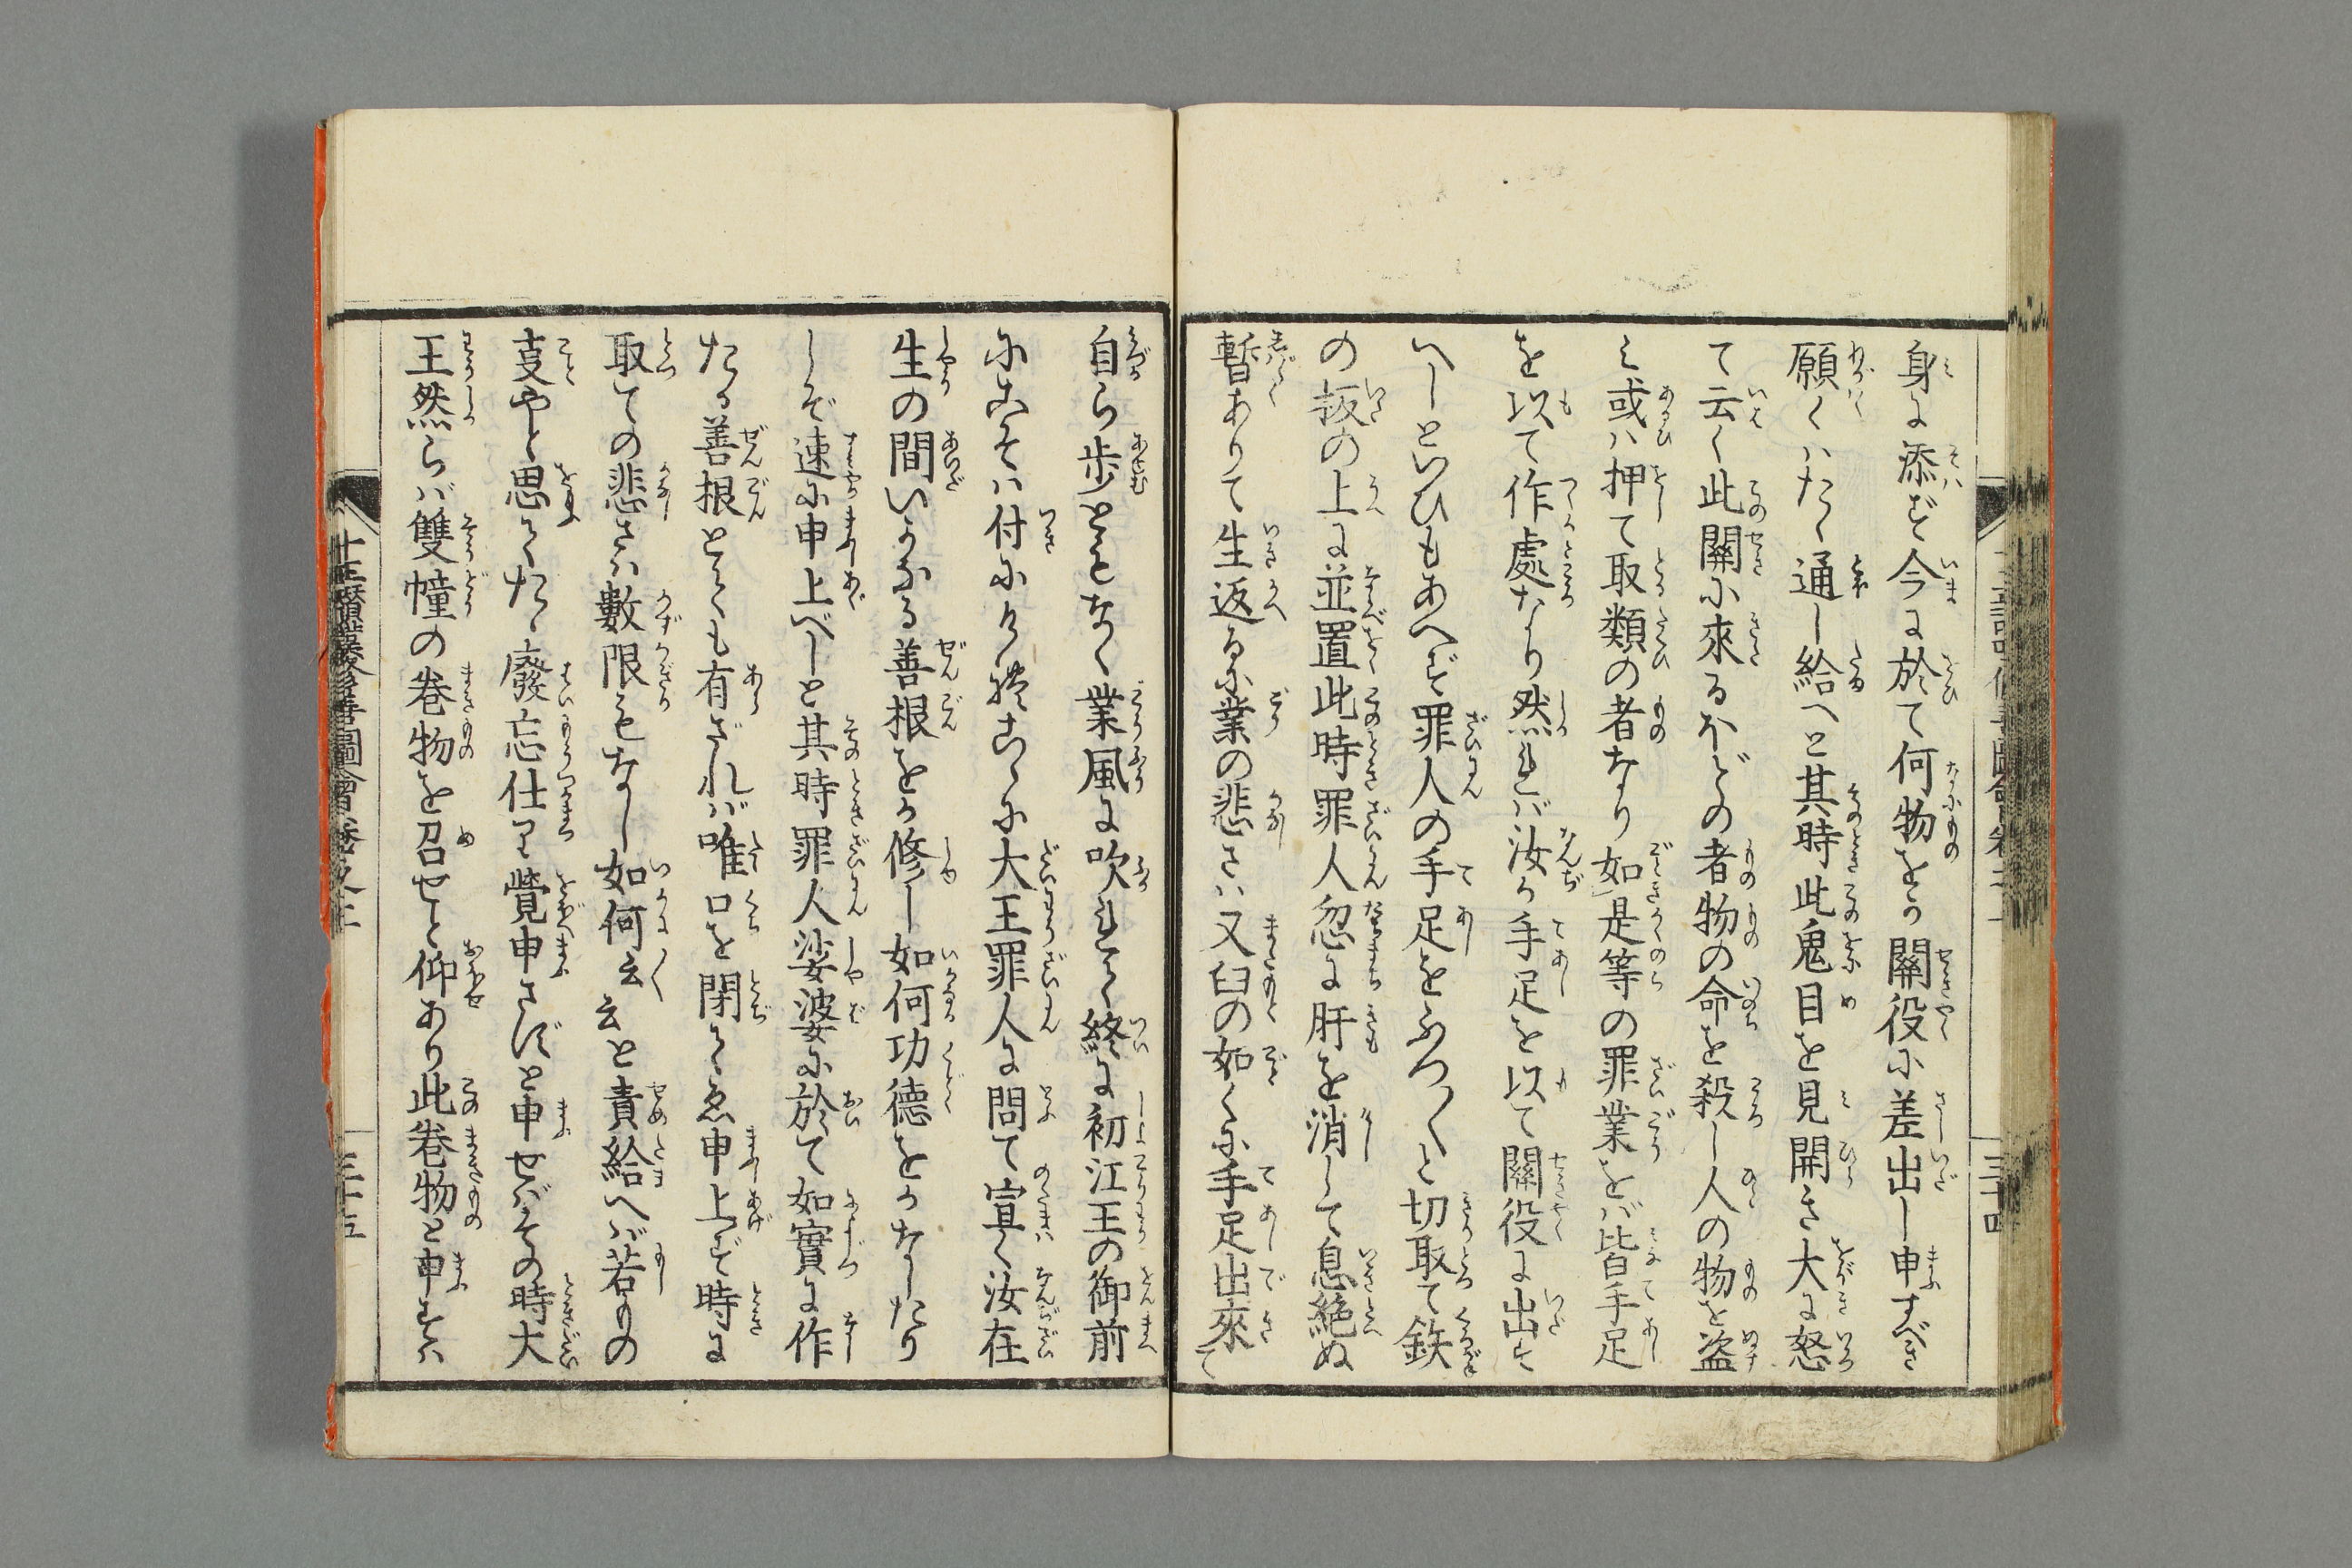 身に添ず今に於て何物をか關役に差出し申すべき
願くはたゞ通し給へと其時此鬼目を見開き大に怒
て云く此關に來るほどの者物の命を殺し人の物を盗
み或は押て取類の者なり如是等の罪業をば皆手足
を以て作處なり然れば汝が手足を以て關役に出す
べしといひもあへず罪人の手足をふつ〳〵と切取て鉄
の板の上に並置此時罪人忽に肝を消して息絶ぬ
暫ありて生返るに業の悲さは又臼の如くに手足出來て
自ら歩ともなく業風に吹れて終に初江王の御前
にこそは付にけれこゝに大王罪人に問て宣く汝在
生の間いかなる善根をか修し如何功德をかなしたり
しぞ速に申上べしと其時罪人娑婆に於て如實に作
たる善根とても有ざれば唯口を閉てゑ申上ず時に
取ての悲さは數限もなし如何云〳〵云と責給へば若もの
叓やと思てたゞ廢忘仕り覺申さずと申せばその時大
王然らば雙幢の巻物を召せと仰あり此巻物と申すは
十王讃嘆修善圖會巻之上
三十四
三十五